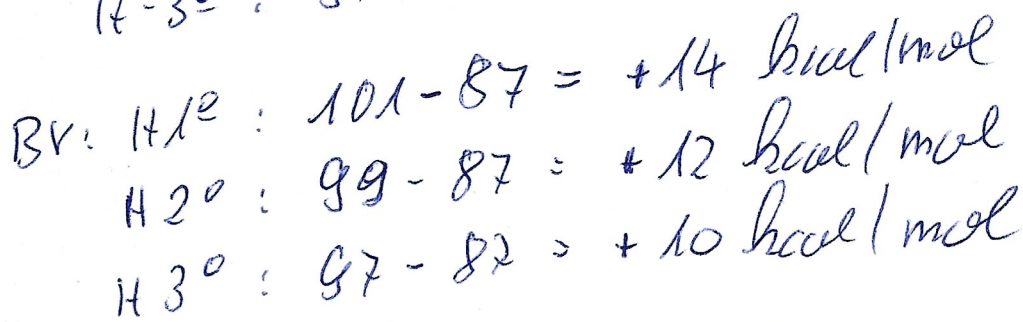 H-3º :
Br: H1º : 101-87 = +14 kcal/mol
H2º : 99-87 = +12 kcal/mol
H3º : 97-87 = +10 kcal/mol